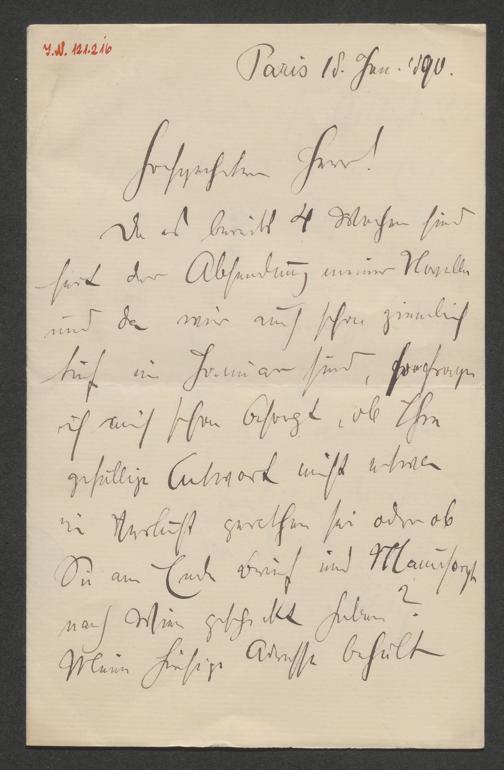 I.N. 121.216
Paris 18. Jan. 1890.
Hochgeehrter Herr!
Da es bereits 4 Wochen sind
seit der Absendung meiner Novelle
und da wir auch schon ziemlich
tief im Januar sind,
ich mich schon besorgt, ob Ihre
gefällige Antwort nicht etwa
in Verlust gerathen sei oder ob
Sie am Ende Brief und Manuscript
nach Wien geschickt haben?
Meine hiesige Adresse behält